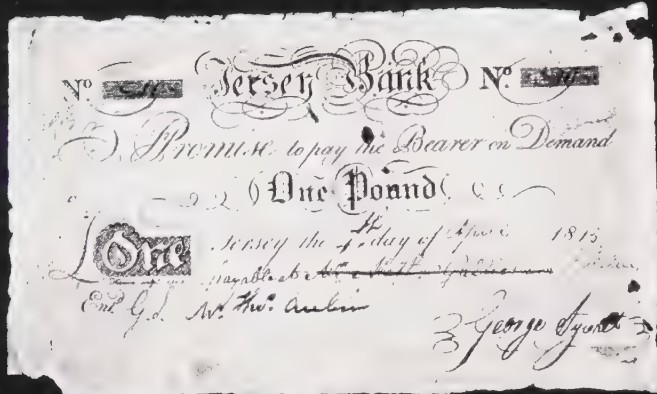 No Jersey Bank No
I Promise to pay the Bearer on Demand
One Pound
£One Jersey the 4th day of April 1813
payable at
Ent. G.S. Mr. Thos. Aubin
George Syvret